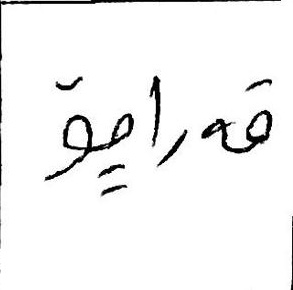 قەراپۆ